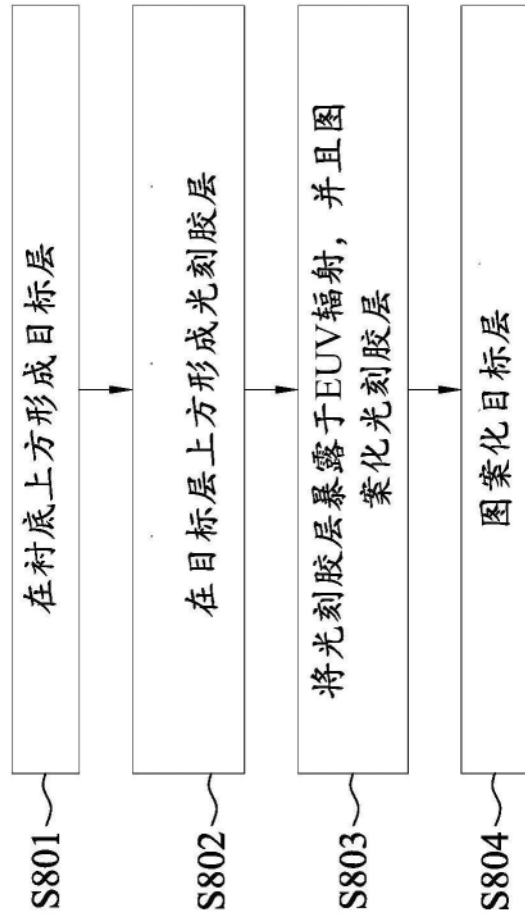 S801
在衬底上方形成目标层
S802
在目标层上方形成光刻胶层
S803
将光刻胶层暴露于EUV辐射，并且图
案化光刻胶层
S804
图案化目标层